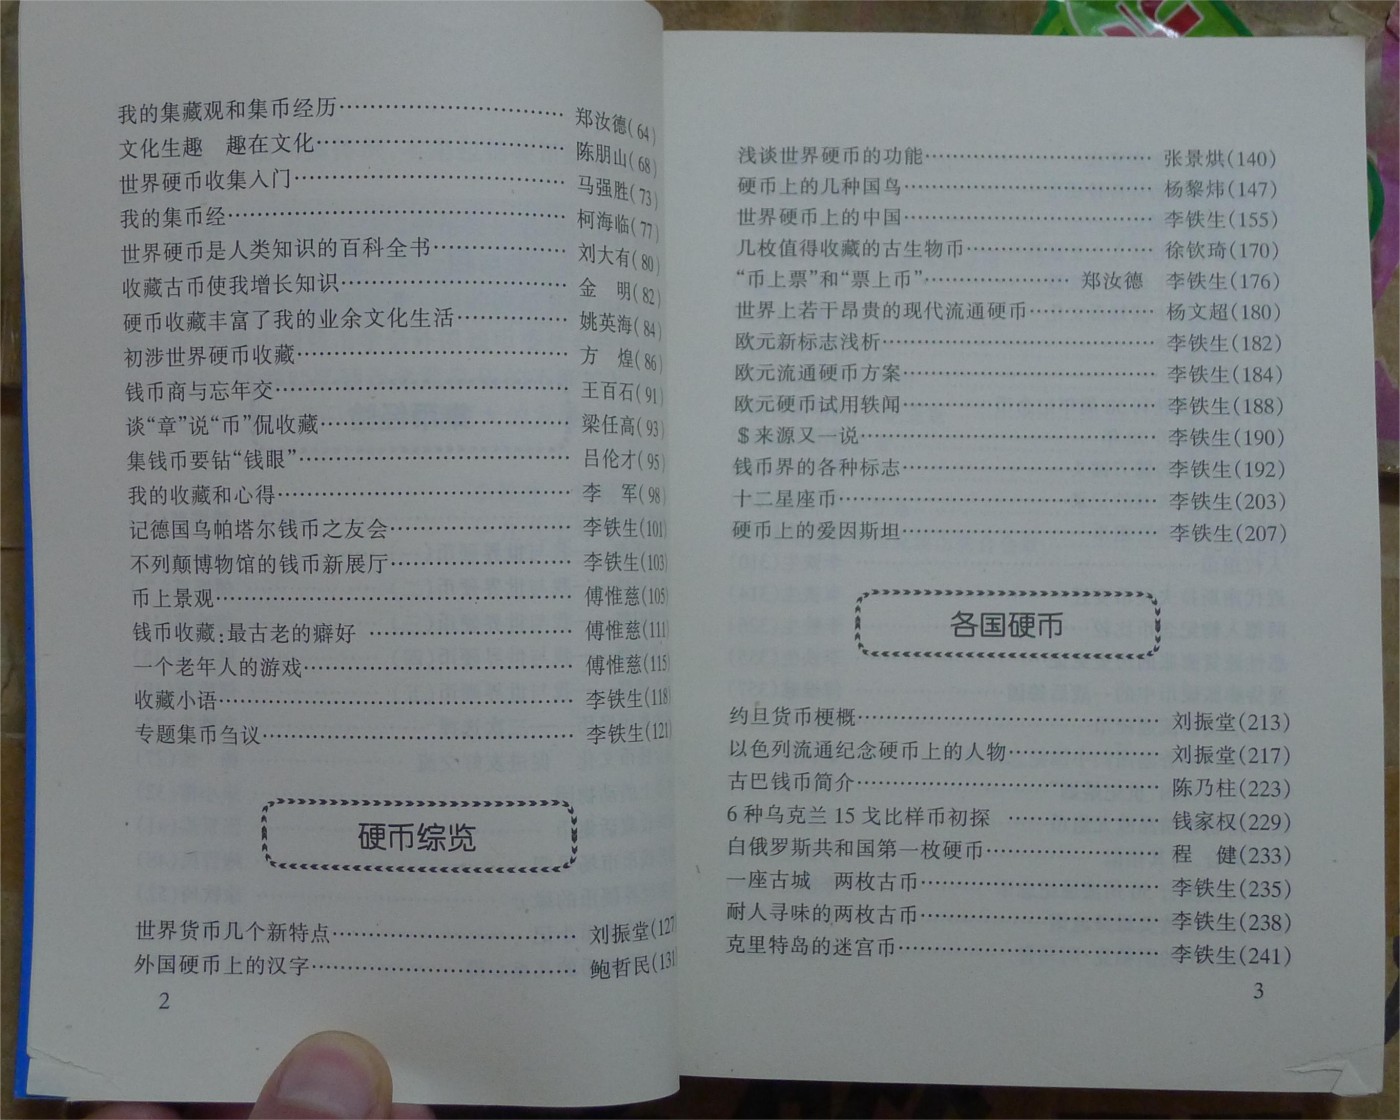 我的集藏观和集币经历…………………… 郑汝德(64)
文化生趣　趣在文化…………………… 陈朋山(68)
世界硬币收集入门…………………… 马强胜(73)
我的集币经…………………… 柯海临(77)
世界硬币是人类知识的百科全书…………… 刘大有(80)
收藏古币使我增长知识…………………… 金　明(82)
硬币收藏丰富了我的业余文化生活………… 姚英海(84)
初涉世界硬币收藏…………………… 方　煌(86)
钱币商与忘年交…………………… 王百石(91)
谈“章”说“币”侃收藏…………………… 梁任高(93)
集钱币要钻“钱眼”…………………… 吕伦才(95)
我的收藏和心得…………………… 李　军(98)
记德国乌帕塔尔钱币之友会……………… 李铁生(101)
不列颠博物馆的钱币新展厅……………… 李铁生(103)
币上景观…………………… 傅惟慈(105)
钱币收藏:最古老的癖好 ……………… 傅惟慈(111)
一个老年人的游戏…………………… 傅惟慈(115)
收藏小语…………………… 李铁生(118)
专题集币刍议…………………… 李铁生(121)
硬币综览
世界货币几个新特点…………………… 刘振堂(127)
外国硬币上的汉字…………………… 鲍哲民(131)
2
浅谈世界硬币的功能…………………… 张景烘(140)
硬币上的几种国鸟…………………… 杨黎炜(147)
世界硬币上的中国…………………… 李铁生(155)
几枚值得收藏的古生物币……………… 徐钦琦(170)
“币上票”和“票上币”…………… 郑汝德　李铁生(176)
世界上若干昂贵的现代流通硬币………… 杨文超(180)
欧元新标志浅析…………………… 李铁生(182)
欧元流通硬币方案…………………… 李铁生(184)
欧元硬币试用轶闻…………………… 李铁生(188)
＄来源又一说…………………… 李铁生(190)
钱币界的各种标志…………………… 李铁生(192)
十二星座币…………………… 李铁生(203)
硬币上的爱因斯坦…………………… 李铁生(207)
各国硬币
约旦货币梗概…………………… 刘振堂(213)
以色列流通纪念硬币上的人物…………… 刘振堂(217)
古巴钱币简介…………………… 陈乃柱(223)
6 种乌克兰 15 戈比样币初探 …………… 钱家权(229)
白俄罗斯共和国第一枚硬币……………… 程　健(233)
一座古城　两枚古币…………………… 李铁生(235)
耐人寻味的两枚古币…………………… 李铁生(238)
克里特岛的迷宫币…………………… 李铁生(241)
3